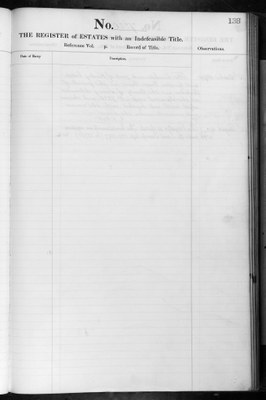 138
No.
THE REGISTER of ESTATES with an Indefeasible Title.
Reference Vol. p. Record of Title.
Observations
Date of Entry.
Description.